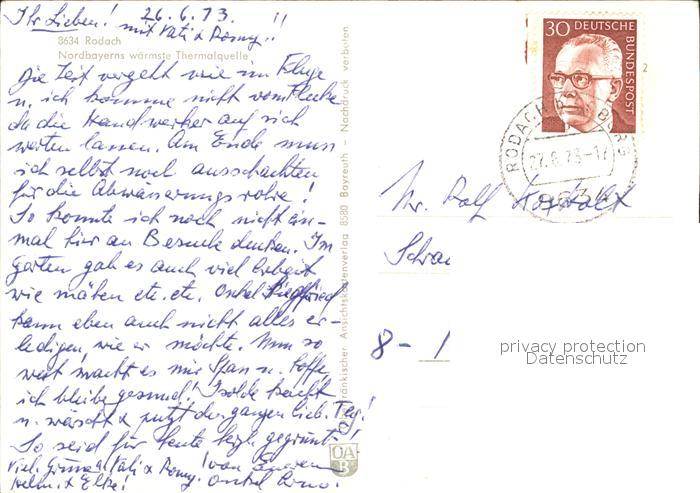 Ihr Lieben! 26.6.73.
mit Kati & Romy!!
8634 Rodach
Nordbayerns wärmste Thermalquelle
Die Zeit vergeht wie im Fluge
u. ich komme nicht vom Flecke
da die Handwerker auf sich
warten lassen. Am Ende muss
ich selbst noch ausschachten
für die Abwässerungsrohre!
So konnte ich noch nicht ein-
mal hier an Besuche denken. Im
Garten gab es auch viel Arbeit
wie mähen etc. etc. Onkel Siegfried
kann eben auch nicht alles er-
ledigen, wie er möchte. Nun so
weit macht es mir Spass u. hoffe,
ich bleibe gesund! Isolde kauft
u. wäscht & putzt den ganzen lieb. Tag!
So seid für heute herzl. gegrüsst!
Viel. Grüsse Kati & Romy! von Eurem
Helm. & Elke! Onkel
Fränkischer Ansichtskartenverlag 8580 Bayreuth – Nachdruck verboten
OA
B
30 DEUTSCHE
BUNDESPOST
2
RODACH B COBURG
27.6.73-17
8634
Hr. Rolf
8- 1
privacy protection
Datenschutz